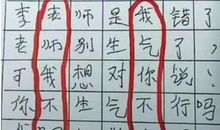 李老师是我错了
老师别生气了
可我想对你说！
你不生气不行吗